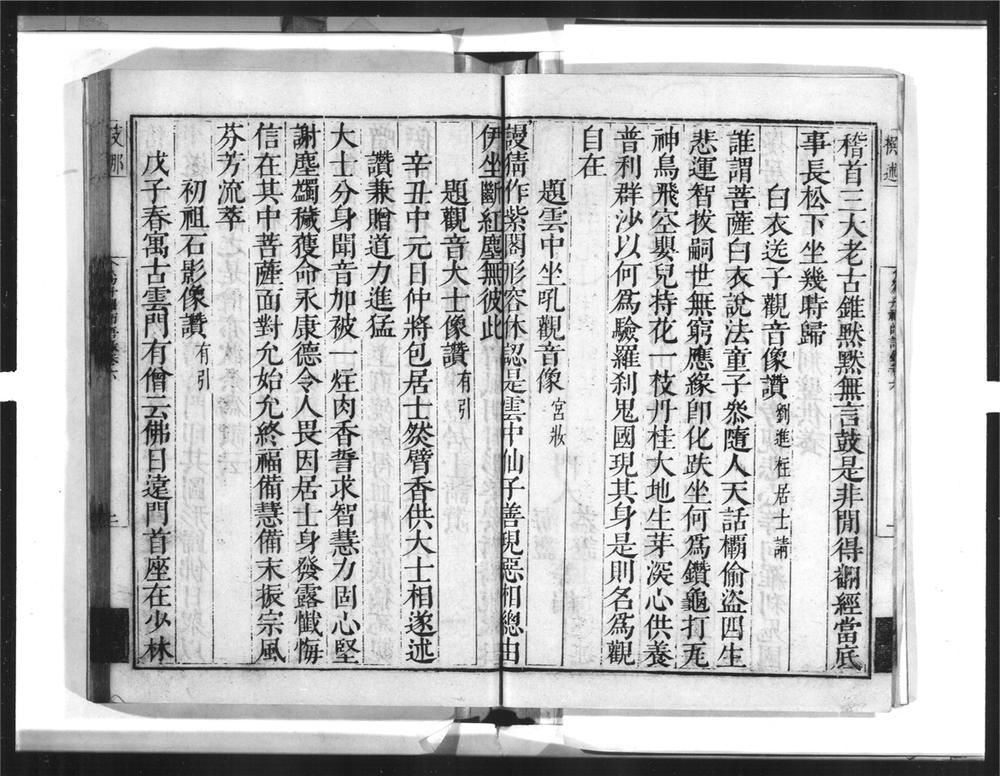 稽首三大老古錐默默無言鼓是非閒得翻經當底
事長松下坐幾時歸
白衣送子觀音像讚 劉進柱居士請
誰謂菩薩白衣說法童子叅隨人天話欛偷盜四生
悲運智拔嗣世無窮應緣即化趺坐何爲鑽龜打瓦
神鳥飛空嬰兒持花一枝丹桂大地生芽深心供養
普利群沙以何爲驗羅刹鬼國現其身是則名爲觀
自在
題雲中坐吼觀音像 宮妝
謾猜作紫閣形容休認是雲中仙子善現惡相總由
伊坐斷紅塵無彼此
題觀音大士像讚 有引
辛丑中元日仲將包居士然臂香供大士相遂述
讚兼贈道力進猛
大士分身聞音加被一炷肉香誓求智慧力固心堅
謝塵蠲穢獲命永康德令人畏因居士身發露懺悔
信在其中菩薩面對允始允終福備慧備末振宗風
芬芳流萃
初祖石影像讚 有引
戊子春寓古雲門有僧云佛日遠門首座在少林
支那